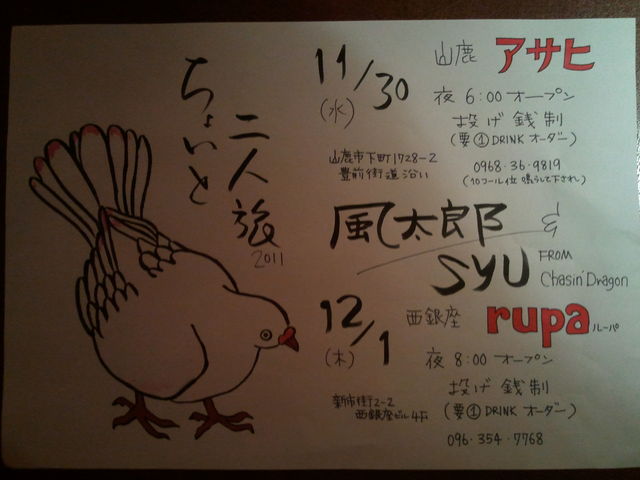 ちょいと
二人旅
2011
11/30
(水)
山鹿 アサヒ
夜 6:00 オープン
投げ銭制
(要① DRINK オーダー)
山鹿市下町1728-2
豊前街道沿い
0968・36・9819
(10コール位 鳴らして下され)
風太郎 &
SYU FROM
Chasin' Dragon
12/1
(木)
西銀座 rupa ルーパ
夜 8:00 オープン
投げ銭制
(要① DRINK オーダー)
新市街2-2
西銀座ビル4F
096・354・7768